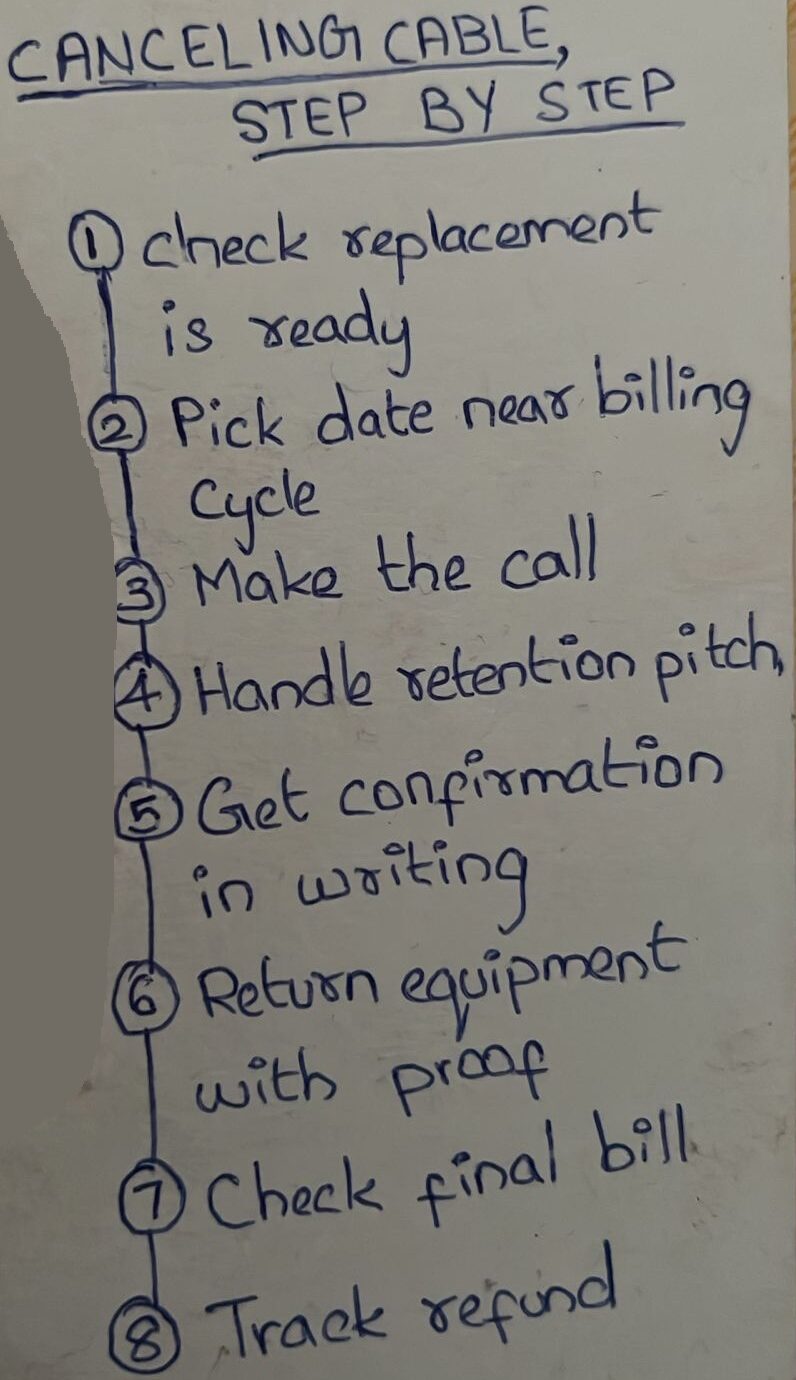 CANCELING CABLE,
STEP BY STEP
1 check replacement
is ready
2 Pick date near billing
Cycle
3 Make the call
4 Handle retention pitch,
5 Get confirmation
in writing
6 Return equipment
with proof
7 Check final bill
8 Track refund